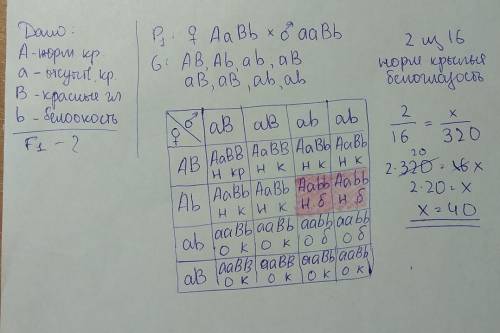 Дано:
A-норм кр.
a-отсутст. кр.
B-красные гл
b-белоокость
F1 - ?
P1: ♀ AaBb × ♂ aaBb
G: AB, Ab, ab, aB
aB, aB, ab, ab
♀ ♂ aB aB ab ab
AB AaBB AaBB AaBb AaBb
н кр н к н к н к
Ab AaBb AaBb Aabb Aabb
н к н к н б н б
ab aaBb aaBb aabb aabb
О к О к О б О б
aB aaBB aaBB aaBb aaBb
О к О к О к О к
2 из 16
норм крылья
белоглазость
2/16 = x/320
20
2·320 = 16 x
2·20 = x
x = 40